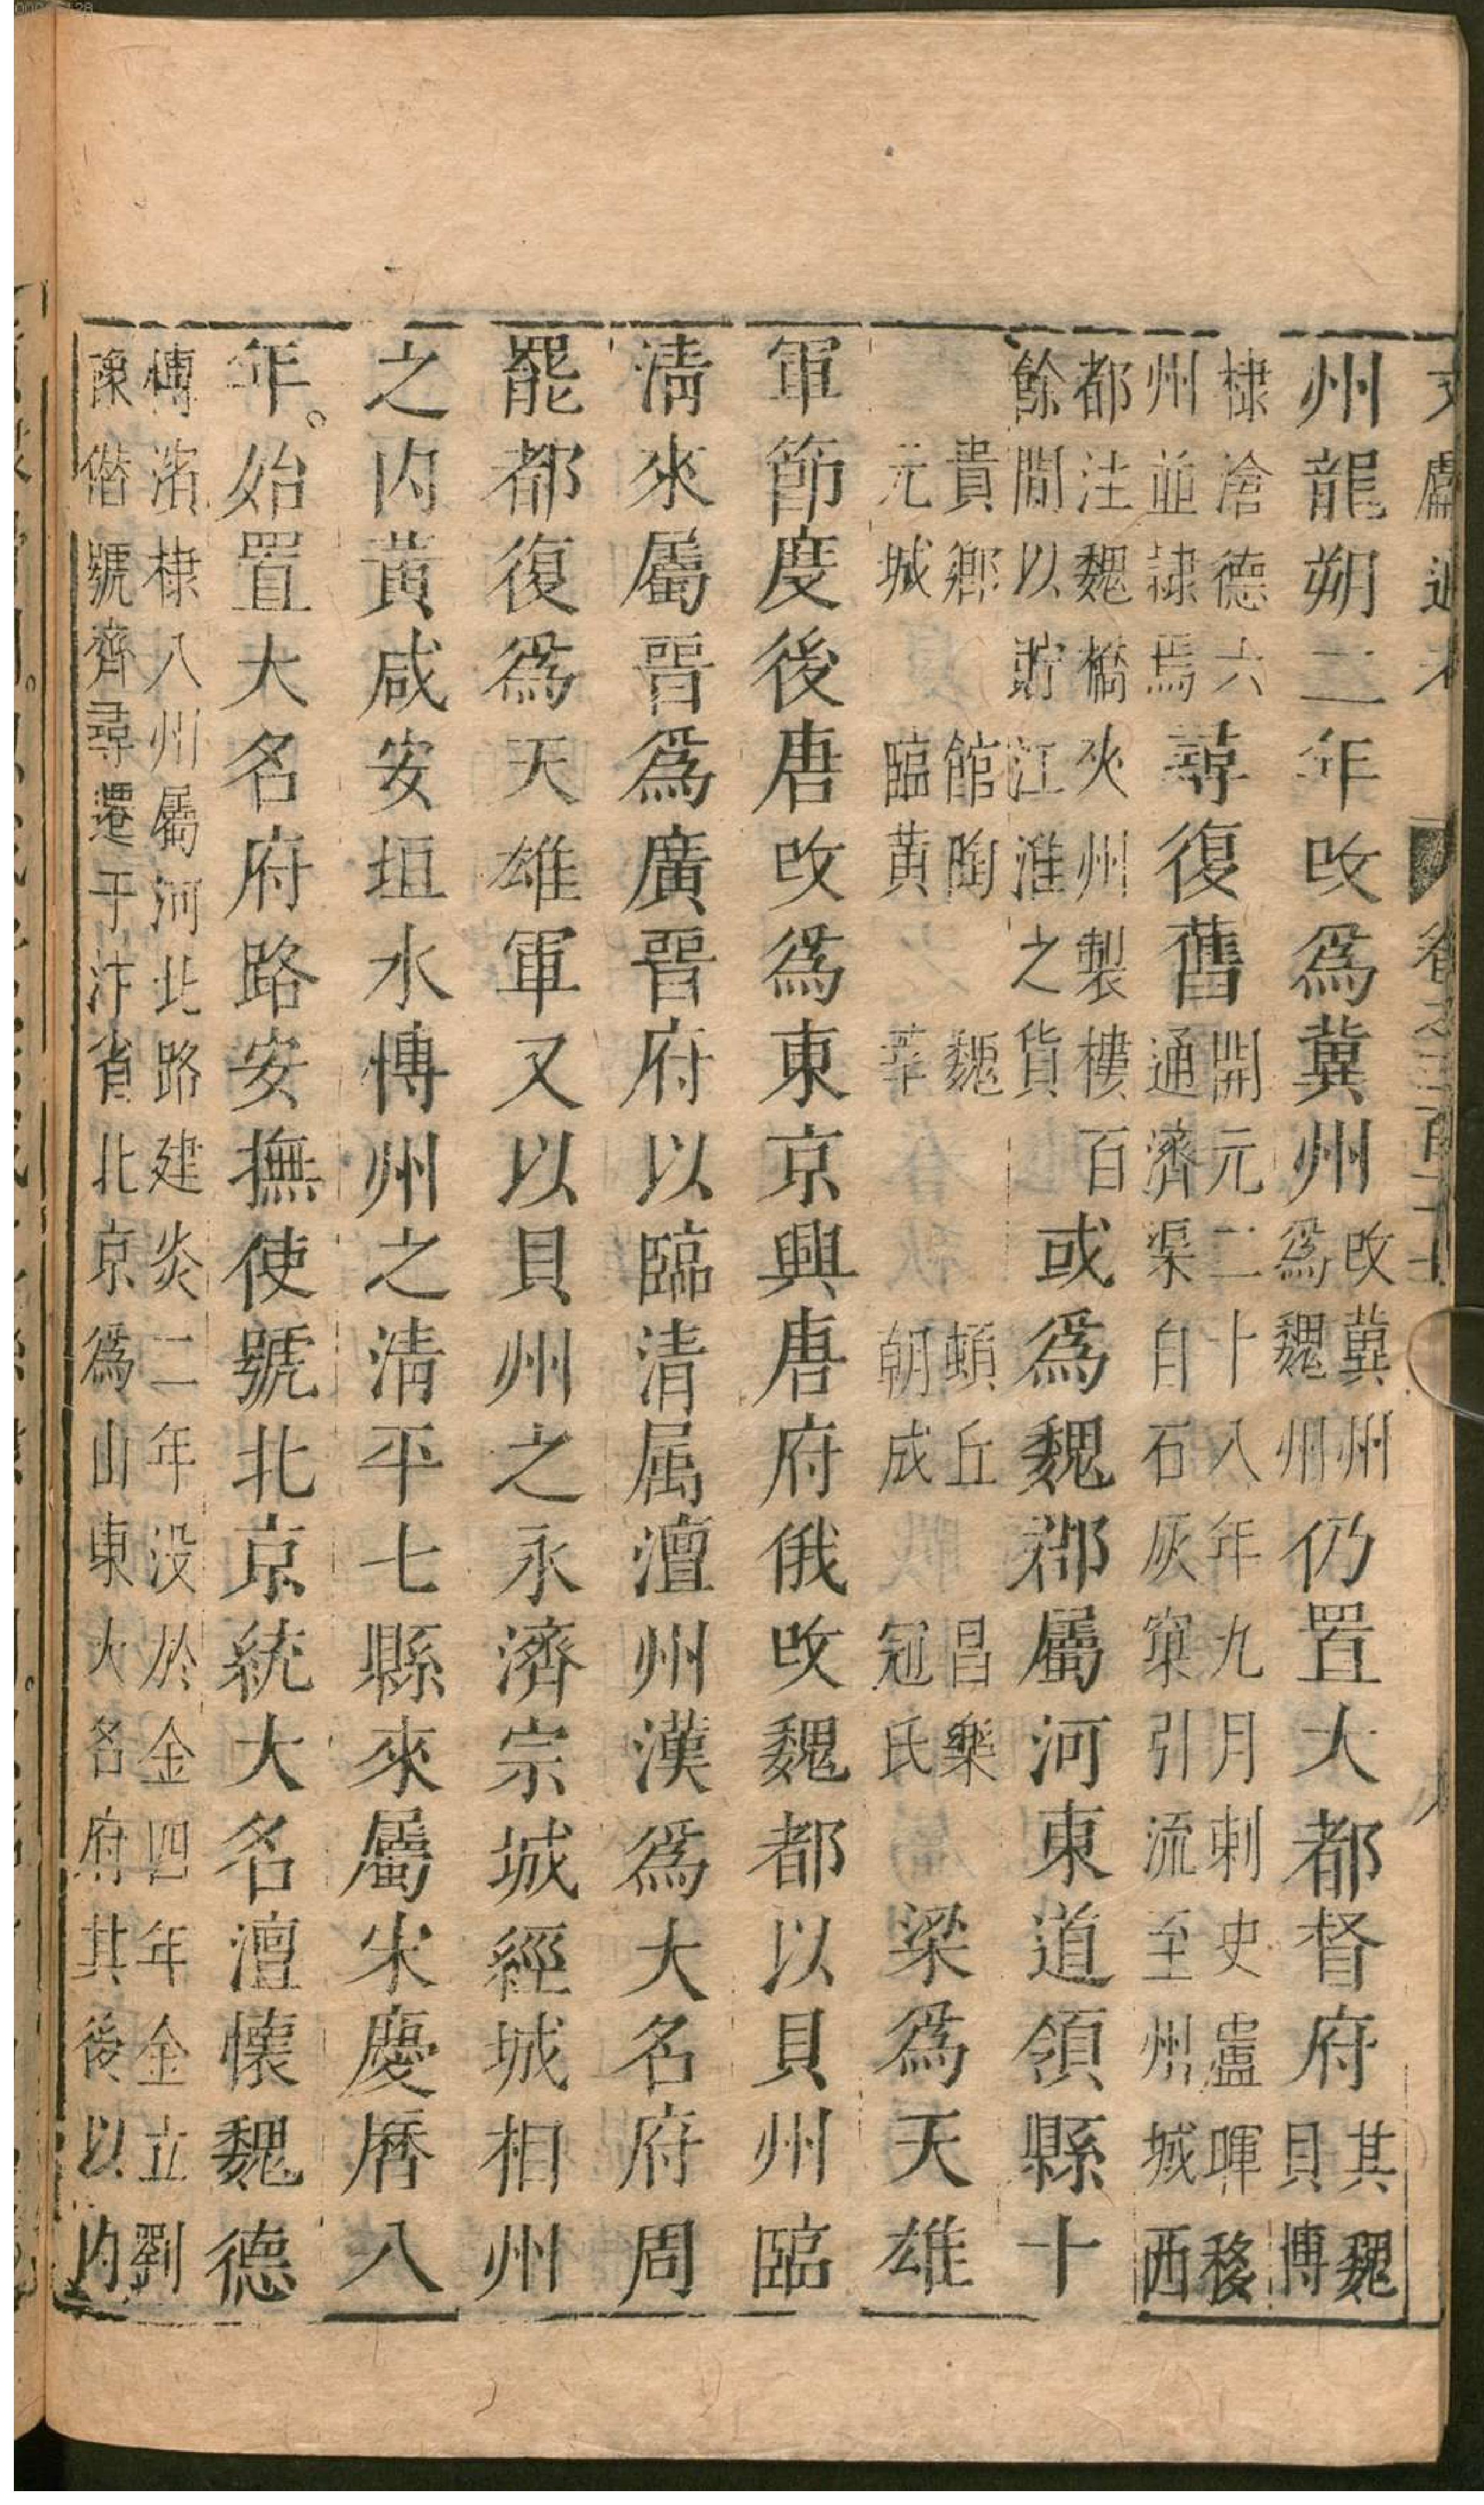 文獻通考 卷之三百十七
州龍朔二年改爲冀州改冀州爲魏州仍置大都督府其魏貝博
棣滄德六州並隷焉尋復舊開元二十八年九月剌史盧暉移通濟渠自石灰窠引流至州城西
都注魏橋夾州製樓百餘間以貯江淮之貨或爲魏郡屬河東道領縣十
貴鄉元城館陶臨黃魏莘頓丘朝成昌樂冠氏梁爲天雄
軍節度後唐改爲東京興唐府俄改魏都以貝州臨
清來屬晉爲廣晉府以臨清属澶州漢爲大名府周
罷都復爲天雄軍又以貝州之永濟宗城經城相州
之内黃咸安垣水博州之清平七縣來屬宋慶曆八
年。始置大名府路安撫使號北京統大名澶懷魏德
博濱棣八州屬河北路建炎二年没於金四年金立劉
豫偕號齊尋遷于汴省北京爲山東大名府其後以内